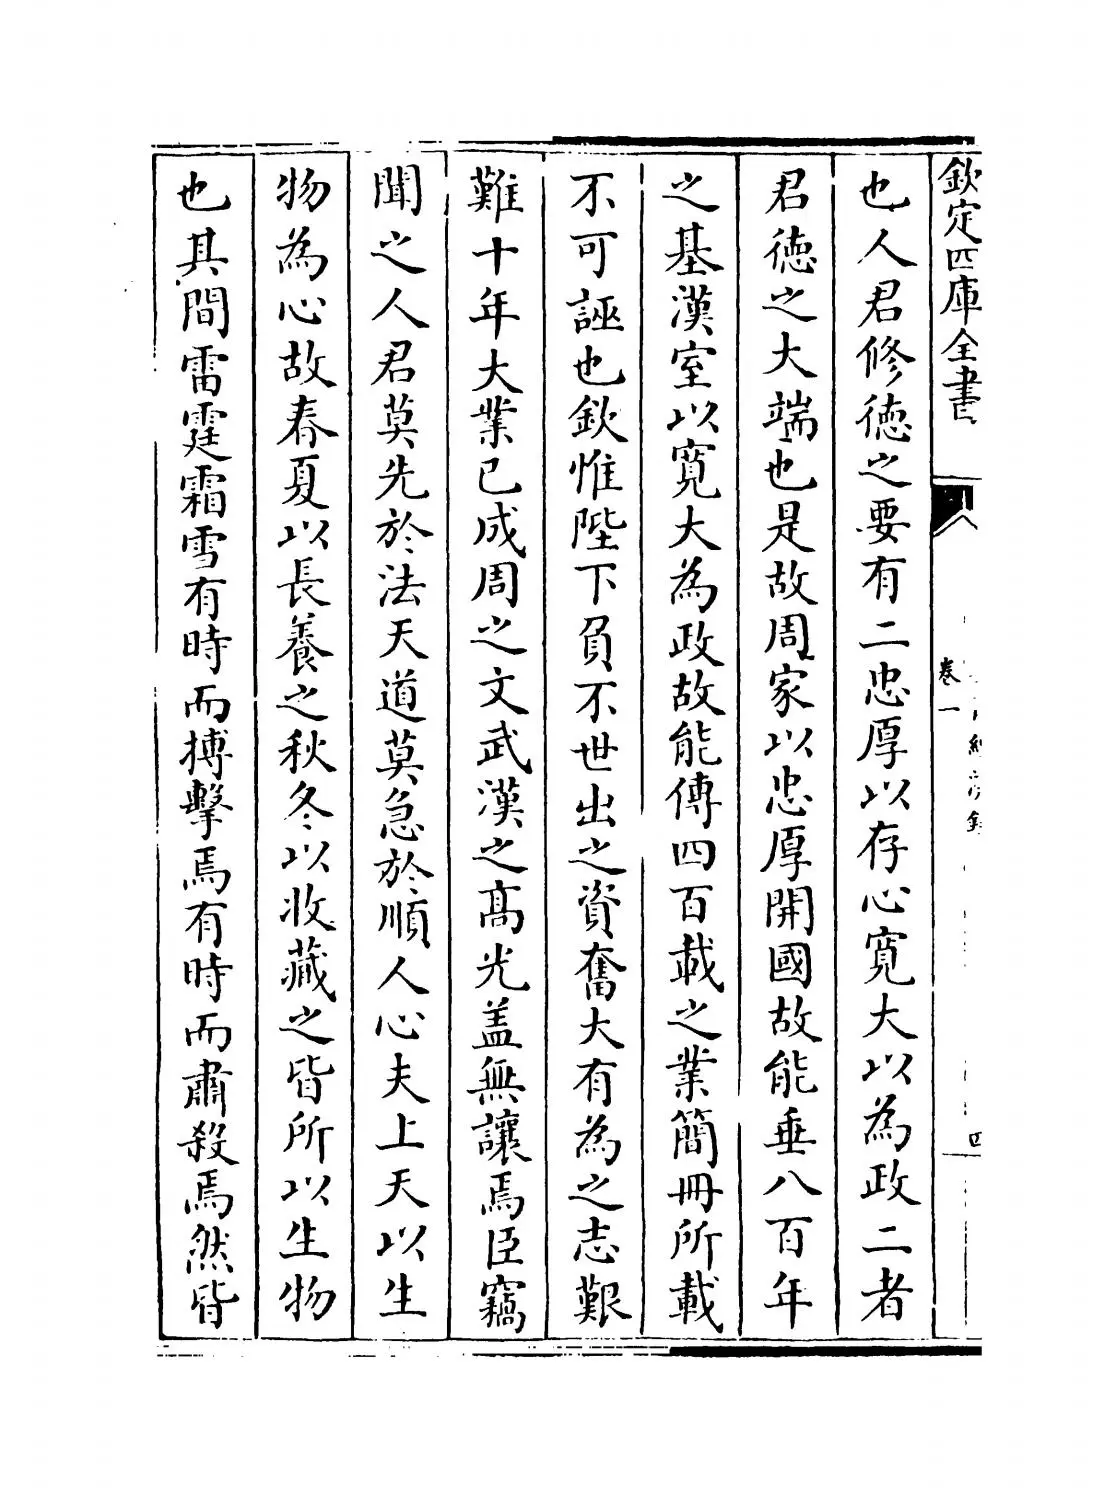 欽定四庫全書
卷一
四
也人君修徳之要有二忠厚以存心寛大以為政二者
君徳之大端也是故周家以忠厚開國故能垂八百年
之基漢室以寛大為政故能傳四百載之業簡冊所載
不可誣也欽惟陛下負不世出之資奮大有為之志艱
難十年大業已成周之文武漢之髙光盖無讓焉臣竊
聞之人君莫先於法天道莫急於順人心夫上天以生
物為心故春夏以長養之秋冬以收藏之皆所以生物
也其間雷霆霜雪有時而搏擊焉有時而肅殺焉然皆